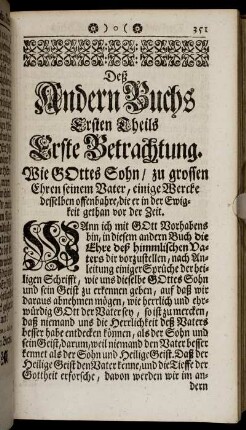 )o( 351
Deß
Andern Buchs
Ersten Theils
Erste Betrachtung.
Wie GOttes Sohn / zu grossen
Ehren seinem Vater / einige Wercke
desselben offenbahre, die er in der Ewig-
keit gethan vor der Zeit.
WAnn ich mit GOtt Vorhabens
bin, in diesem andern Buch die
Ehre deß himmlischen Va-
ters dir vorzustellen, nach An-
leitung einiger Sprüche der hei-
ligen Schrifft, wie uns dieselbe GOttes Sohn
und sein Geist zu erkennen geben, auf daß wir
daraus abnehmen mögen, wie herrlich und ehr-
würdig GOtt der Vater sey, so ist zu mercken,
daß niemand uns die Herrlichkeit deß Vaters
besser habe entdecken können, als der Sohn und
sein Geist, darum, weil niemand den Vater besser
kennet als der Sohn und Heilige Geist. Daß der
Heilige Geist den Vater kenne, und die Tieffe der
Gottheit erforsche, davon werden wir im an-
dern